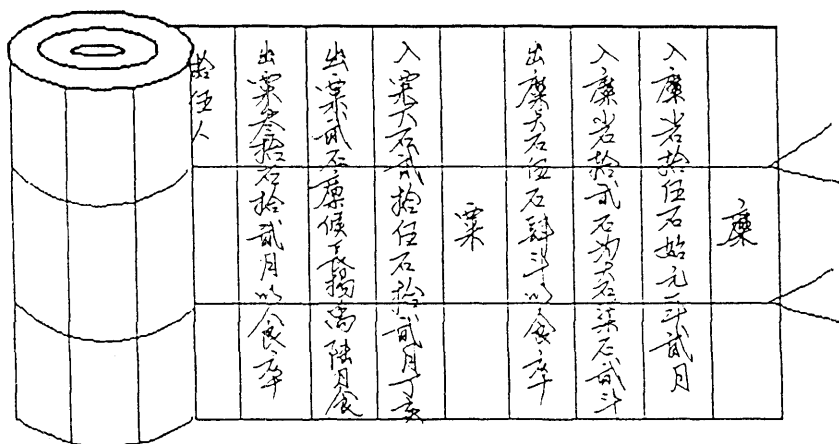 糜
入糜若拾伍石始元二年貳月
入糜若拾貳石為大石柒石貳斗
出糜大石伍石肆斗以食卒
粟
入粟大石貳拾伍石拾貳月丁亥
出粟貳石糜候長揚禹陸月食
出粟叁拾石拾貳月以食卒
拾伍人